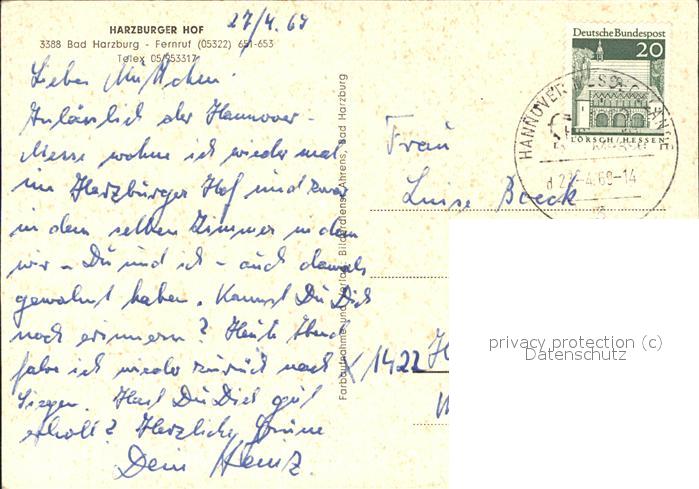 HARZBURGER HOF
3388 Bad Harzburg - Fernruf (05322) 651-653
Telex 05/953317
27/4. 69
Liebes Muttchen!
Anlässlich der Hannover-
Messe wohne ich wieder mal
im Harzburger Hof und zwar
in dem selben Zimmer in dem
wir - Du und ich - auch damals
gewohnt haben. Kannst Du Dich
noch erinnern? Heute Abend
fahre ich wieder zurück nach
Siegen. Hast Du Dich gut
erholt? Herzliche Grüsse
Dein Heinz.
Farbaufnahme und Verlag: Bilderdienst Ahrens, Bad Harzburg
Deutsche Bundespost
20
LORSCH/HESSEN
HANNOVER MESSEGELÄNDE
27.-4.69-14
Frau
Luise Boeck
1422
privacy protection (c)
Datenschutz